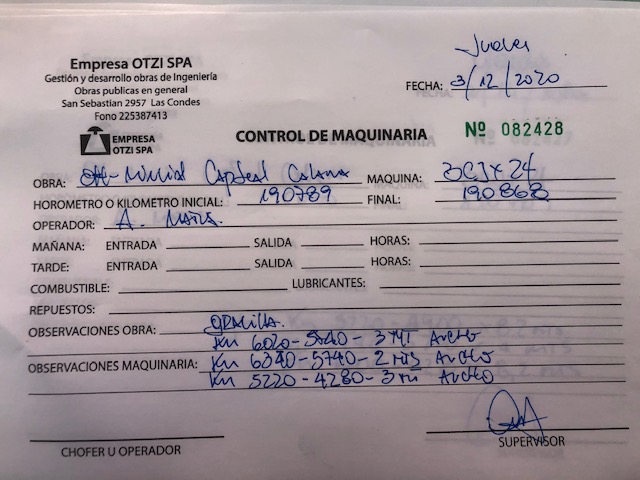 Empresa OTZI SPA
Gestión y desarrollo obras de Ingeniería
Obras publicas en general
San Sebastian 2957 Las Condes
Fono 225587413
Jueves
FECHA: 3/12/2020
EMPRESA
OTZI SPA
CONTROL DE MAQUINARIA
Nº 082428
OBRA: Capital MAQUINA: 24
HOROMETRO O KILOMETRO INICIAL: 190789 FINAL: 190868
OPERADOR: A.
MAÑANA: ENTRADA SALIDA HORAS:
TARDE: ENTRADA SALIDA HORAS:
COMBUSTIBLE: LUBRICANTES:
REPUESTOS:
OBSERVACIONES OBRA:
Km Ancho
OBSERVACIONES MAQUINARIA: Km - 5740 - 2 Ancho
Km 5220 - 4280 - 3 Ancho
CHOFER U OPERADOR
SUPERVISOR